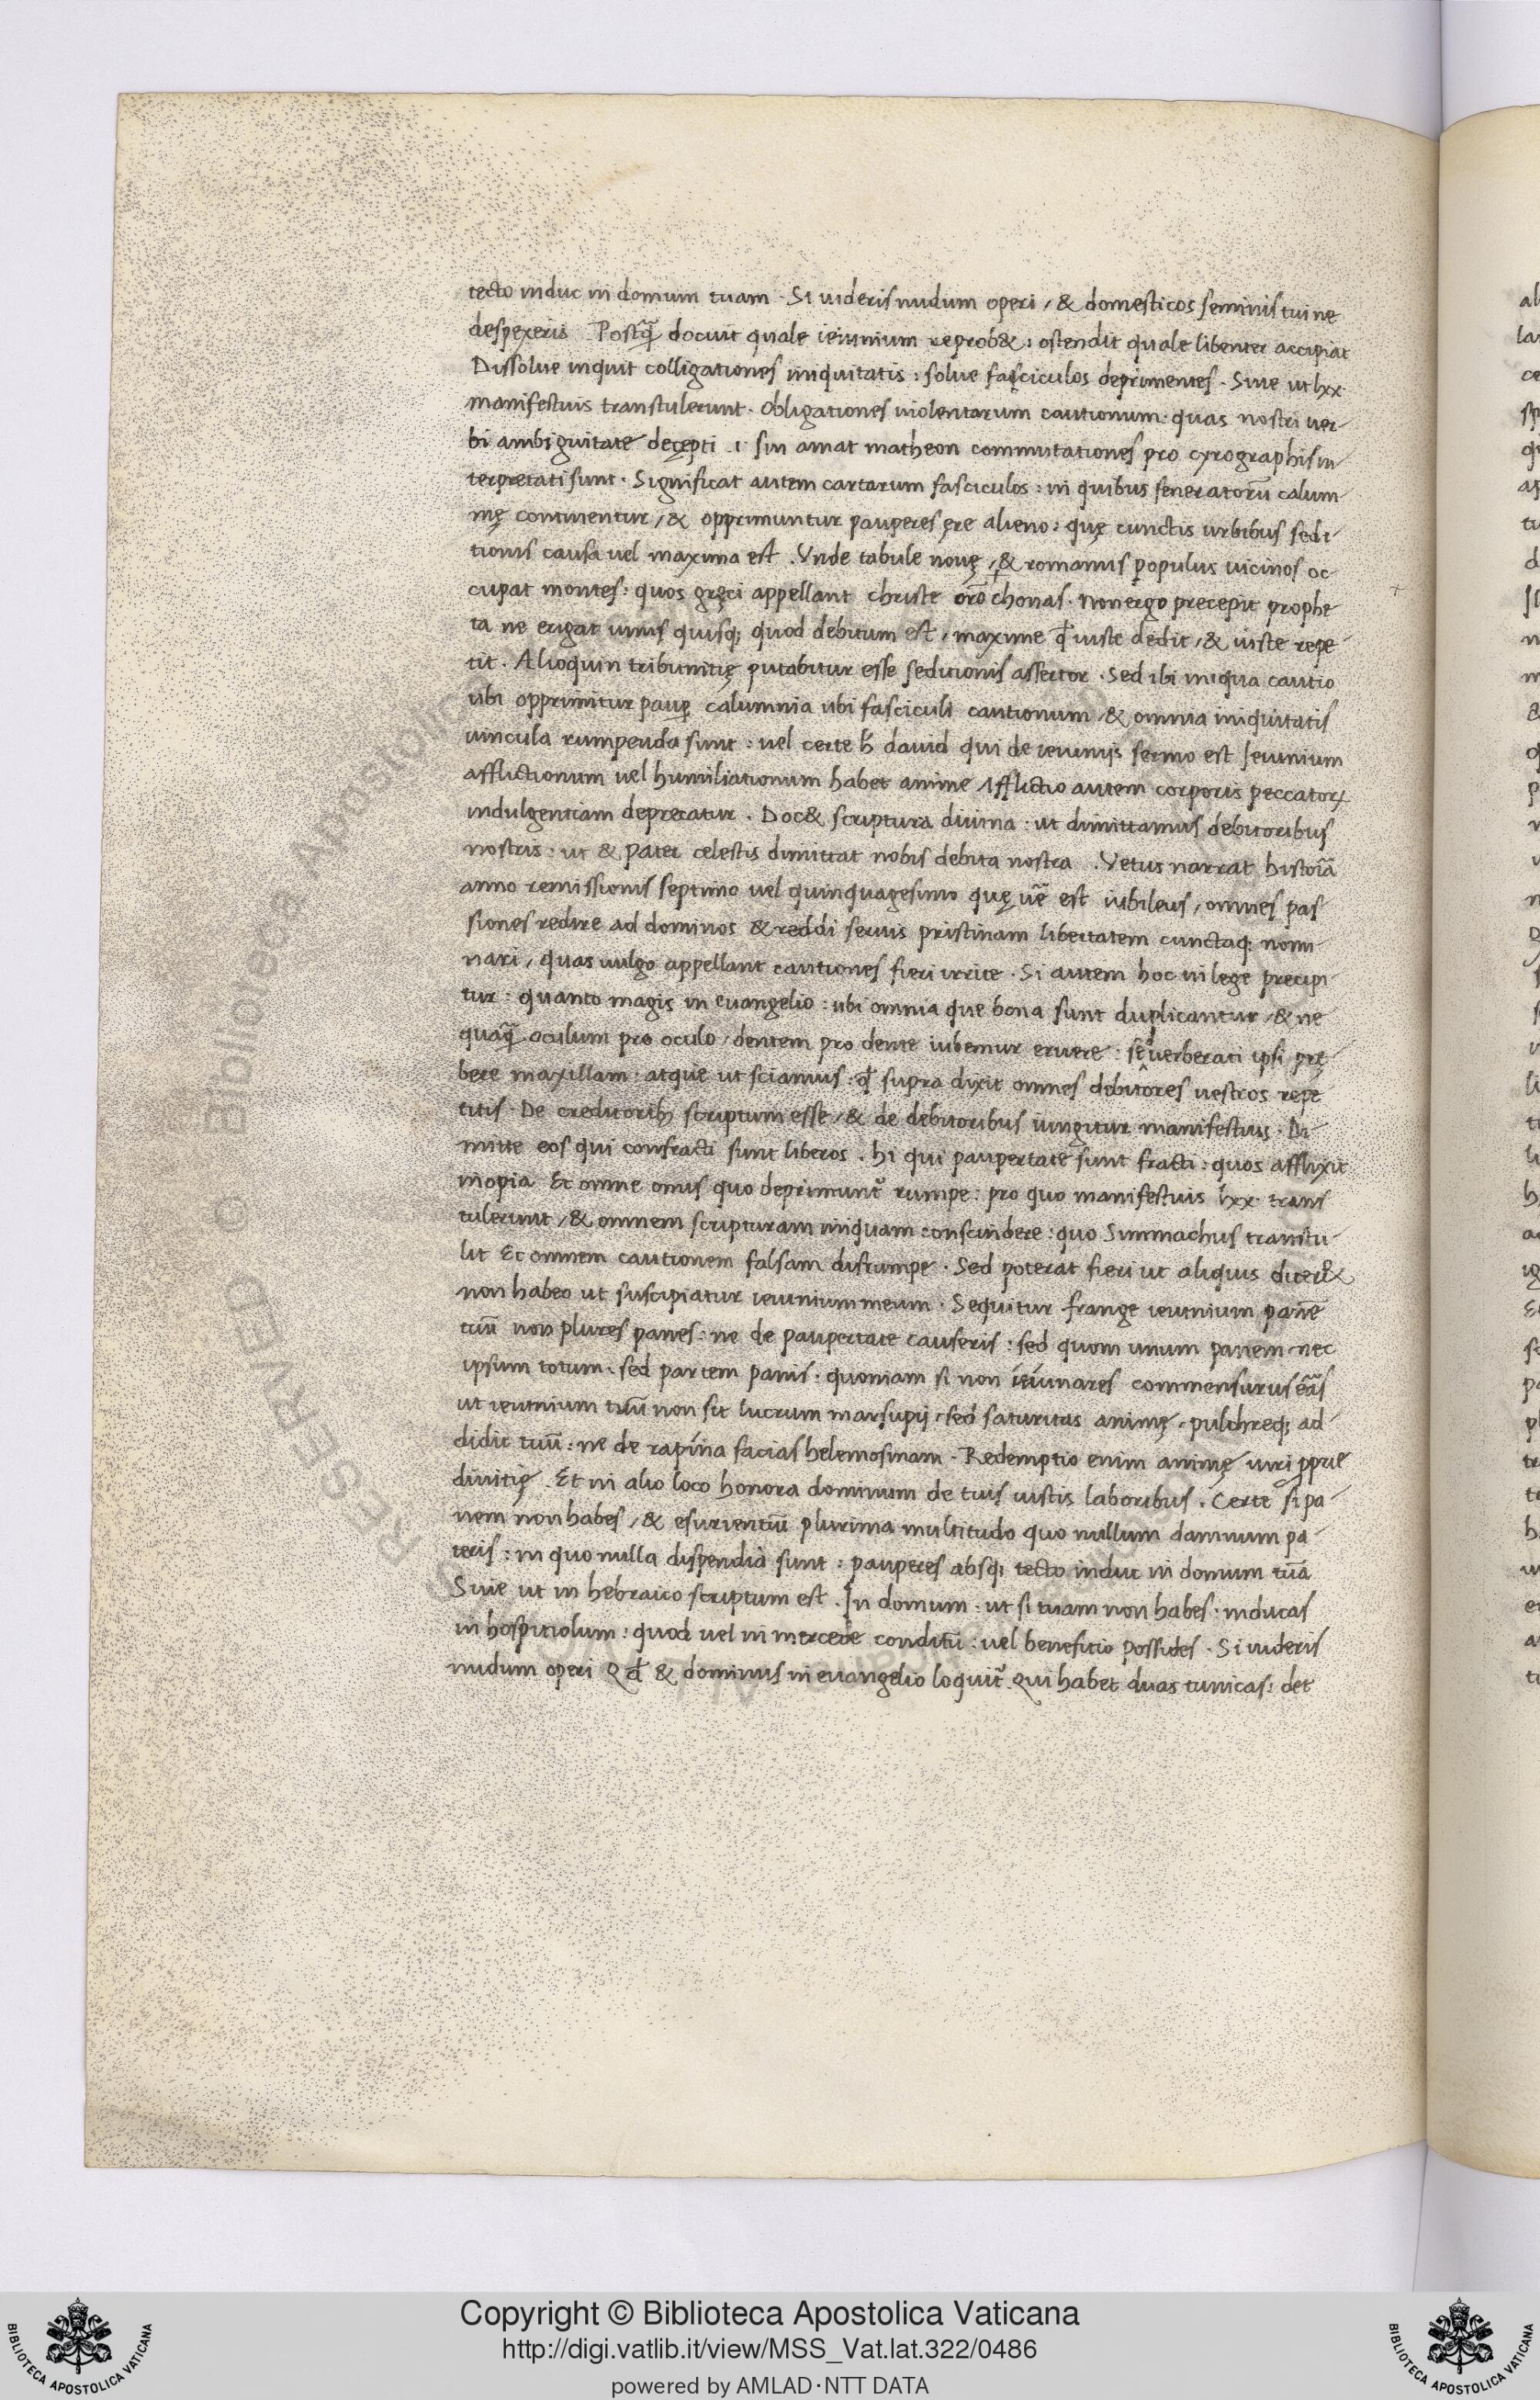 tecto induc in domum tuam · Si uideris nudum operi / & domesticos seminis tui ne
despexeris Postq̃ docuit quale ieiunium reprob& : ostendit quale libenter accipiat
Dissolue inquit colligationes iniquitatis : solue fasciculos deprimentes · Siue ut lxx·
manifestius transtulerunt · obligationes uiolentarum cautionum · quas nostri uer-
bi ambiguitate decępti · i · sin amat matheon commutationes pro cyrographis in-
terpretati sunt · Significat autem cartarum fasciculos : in quibus feneratorū calum-
nię continentur / & opprimuntur pauperes ęre alieno : quę cunctis urbibus sedi-
tionis causa uel maxima est . Vnde tabule nouę / & romanus populus uicinos oc-
cupat montes : quos gręci appellant christe orō chonas · non ergo precepit prophe-
ta ne erigat unus quisq; quod debitum est / maxime qđ iuste dedit / & iuste repe-
tit · Alioquin tribunitię putabitur esse seditionis assertor · Sed ibi iniqua cautio
ubi opprimitur paup calumnia ubi fasciculi cautionum / & omnia iniquitatis
uincula rumpenda sunt : uel certe david qui de ieiunijs sermo est Ieiunium
afflictionum uel humiliationum habet anime Afflictio autem corporis peccatorꝝ
indulgentiam deprecatur . Doc& scriptura diuina : ut dimittamus debitoribus
nostris : ut & pater celestis dimittat nobis debita nostra . Vetus narrat historiā
anno remissionis septimo uel quinquagesimo quę uē est iubileus / omnes pos
siones redire ad dominos & reddi seruis pristinam libertatem cunctaq; nomi-
nari / quas uulgo appellant cautiones fieri irrite · Si autem hoc in lege precipi-
tur : quanto magis in euangelio : ubi omnia que bona sunt duplicantur / & ne
quaq̃ oculum pro oculo / dentem pro dente iubemur eruere : uerberati ipsi prę-
bere maxillam · atque ut sciamus : qđ supra dixit omnes debitores uestros repe
titis · De creditorib; scriptum esse / & de debitoribus iungitur manifestius · Di-
mitte eos qui confracti sunt liberos . hi qui paupertate sunt fracti : quos afflixit
inopia Et omne onus quo deprimunt᷑ rumpe : pro quo manifestius lxx· trans
tulerunt / & omnem scripturam iniquam conscindere : quo Simmachus transtu-
lit Et omnem cautionem falsam disrumpe · Sed poterat fieri ut aliquis dicer&
non habeo ut suscipiatur ieiunium meum · Sequitur frange ieiunium panē
tuū non plures panes : ne de paupertate causeris : sed quom unum panem nec
ipsum totum · sed partem panis · quoniam si non ieiunares commensurus erās
ut ieiunium tuū non sit lucrum marsupij / sed saturitas animę · pulchreq; ad-
didit tuū : ne de rapina facias helemosinam · Redemptio enim animę uiri pprie
diuitię . Et in alio loco honora dominum de tuis iustis laboribus . Certe si pa-
nem non habes / & esurientiū plurima multitudo quo nullum damnum pa-
teris : in quo nulla dispendia sunt : pauperes absq; tecto induc in domum tuā
Siue ut in hebraico scriptum est . In domum · ut si tuam non habes : inducas
in hospitiolum : quod uel in mercede conditū : uel benefitio possides · Si uideris
nudum operi Qđ & dominus in euangelio loquit᷑ Qui habet duas tunicas : det
Copyright © Biblioteca Apostolica Vaticana
http://digi.vatlib.it/view/MSS_Vat.lat.322/0486
powered by AMLAD·NTT DATA
BIBLIOTECA APOSTOLICA VATICANA
BIBLIOTECA APOSTOLICA VATICANA